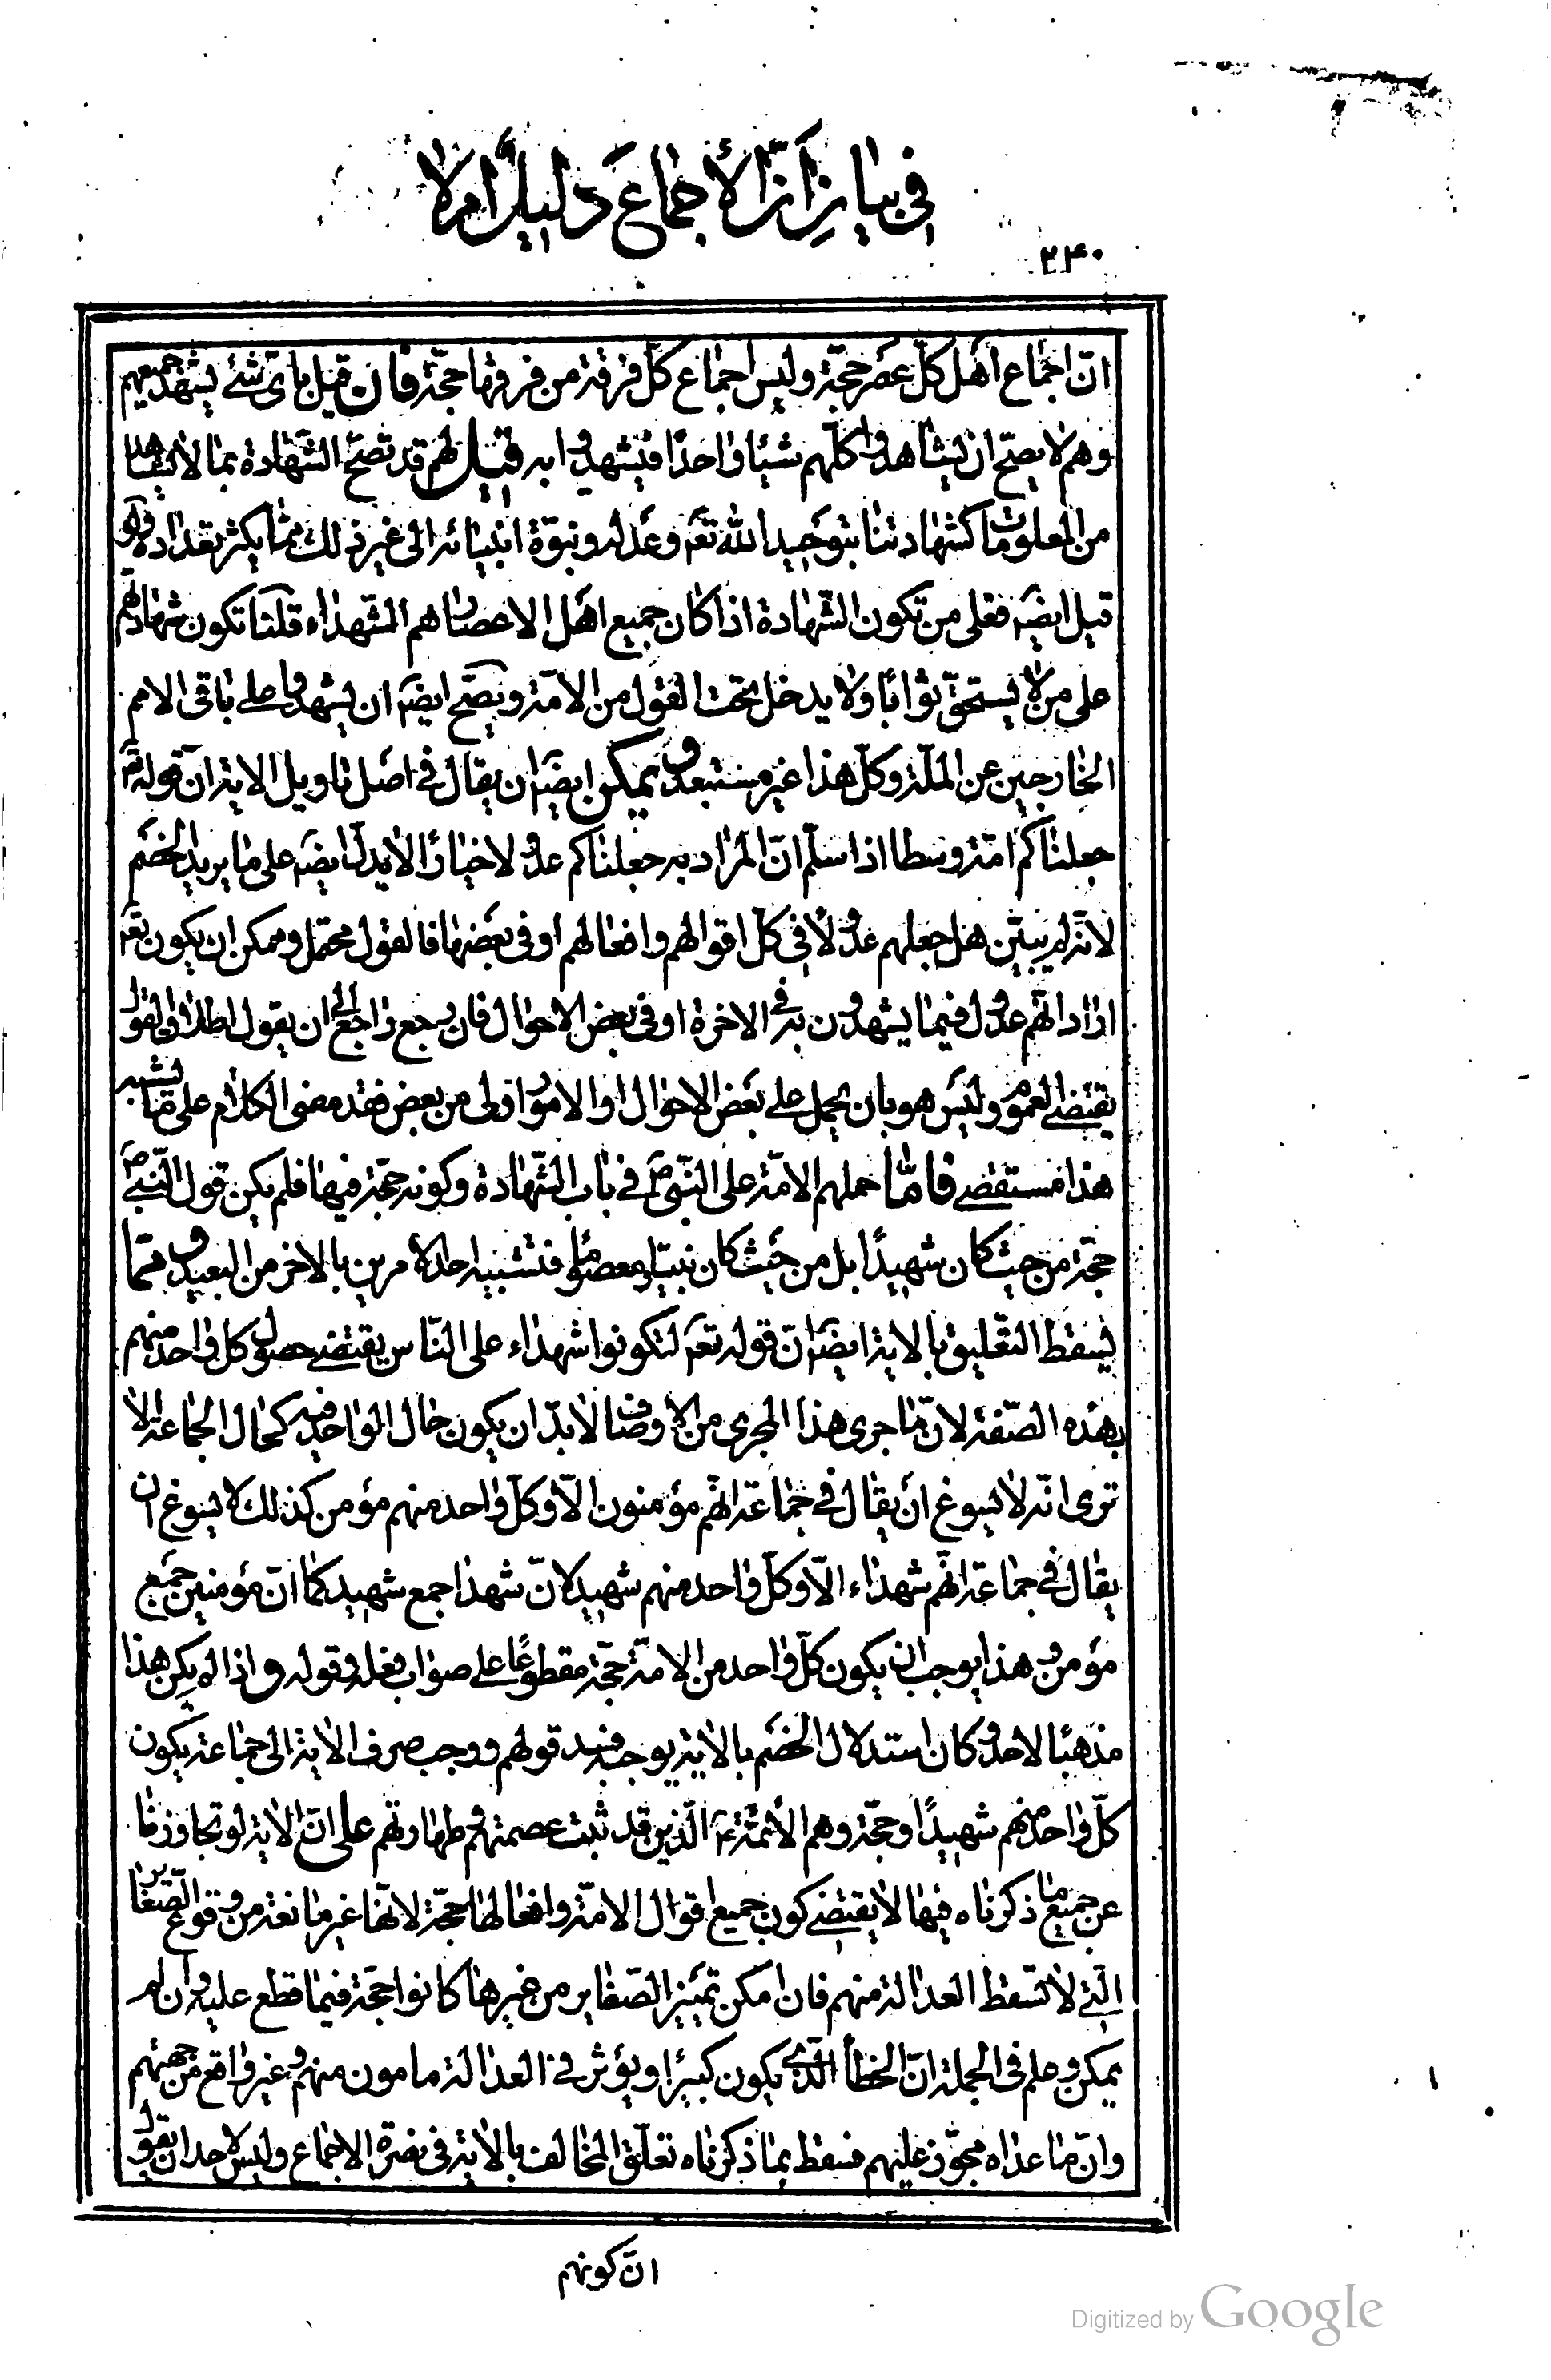 في بيان أنّ الأجماع دليل أم لا
٢٣٠
انّ اجماع اهل كلّ عصر حجّة وليس اجماع كلّ فرقة من فرقها حجّة فان قيل باىّ شئ يشهد جميعهم
وهم لا يصحّ ان يشاهدوا كلّهم شيئا واحدًا فيشهدوا به قيل لهم قد تصحّ الشّهادة بما لا يشاهد
من المعلومات كشهادتنا بتوحيد الله تعه وعدله ونبوّة انبيائه الى غير ذلك ممّا يكثر تعداده ولو
قيل ايضه فعلى من تكون الشّهادة اذا كان جميع اهل الاعصار هم الشّهداء قلنا تكون شهادتهم
على من لا يستحقّ ثوابًا ولا يدخل تحت القول من الامّة ويصحّ ايضه ان يشهدوا على باقى الامم
الخارجين عن الملّة وكلّ هذا غير مستبعد ويمكن ايضه ان يقال فى اصل تاويل الاية انّ قوله تعه
جعلناكم امّة وسطا اذا سلّم انّ المراد به جعلناكم عدولا خيارًا لا يدلّ ايضه على ما يريد الخصم
لانّه لم يبيّن هل جعلهم عدولًا فى كلّ اقوالهم وافعالهم او فى بعضها فالقول محتمل وممكن ان يكون تعه
اراد انّهم عدول فيما يشهدون به فى الاخرة او فى بعض الاحوال فان رجع راجع الى ان يقول اطلاق القول
يقتضى العموم وليس هو بان يحمل على بعض الاحوال او الامور اولى من بعض فقد مضى الكلام على ما يشبه
هذا مستقصى فامّا حملهم الامّة على النّبى ص فى باب الشّهادة وكونه حجّة فيها فلم يكن قول النّبى ص
حجّة من حيث كان شهيدًا بل من حيث كان نبيّا ومعصوما فتشبيه احد الامرين بالاخر من البعيد وممّا
يسقط التّعليق بالاية ايضه انّ قوله تعه لتكونوا شهداء على النّاس يقتضى حصول كلّ واحد منهم
بهذه الصّفة لانّ ما جرى هذا المجرى من الاوصاف لا بدّ ان يكون حال الواحد فيه كحال الجماعة الا
ترى انّه لا يسوغ ان يقال فى جماعة انّهم مؤمنون الّا وكلّ واحد منهم مؤمن كذلك لا يسوغ ان
يقال فى جماعة انّهم شهداء الّا وكلّ واحد منهم شهيد لانّ شهدا جمع شهيد كما انّ مؤمنين جمع
مؤمن وهذا يوجب ان يكون كلّ واحد من الامّة حجّة مقطوعًا على صواب فعله وقوله واذا لم يكن هذا
مذهبًا لاحد وكان استدلال الخصم بالاية يوجبه فسد قولهم ووجب صرف الاية الى جماعة يكون
كلّ واحد منهم شهيدًا وحجّة وهم الأئمّة ع الّذين قد ثبت عصمتهم وطهارتهم على انّ الاية لو تجاوزنا
عن جميع ما ذكرناه فيها لا يقتضى كون جميع اقوال الامّة وافعالها حجّة لانّها غير مانعة من وقوع الصّغاير
الّتى لا تسقط العدالة منهم فان امكن تمييز الصّغاير من غيرها كانوا حجّة فيما قطع عليه وان لم
يمكن وعلم فى الجملة انّ الخطأ الّذى يكون كبيرًا ويؤثر فى العدالة مامون منهم وغير واقع من جهتهم
وانّ ما عداه مجوّز عليهم فسقط بما ذكرناه تعلّق المخالف بالاية فى نصرة الاجماع وليس لاحد ان يقول
انّ كونهم
Digitized by Google